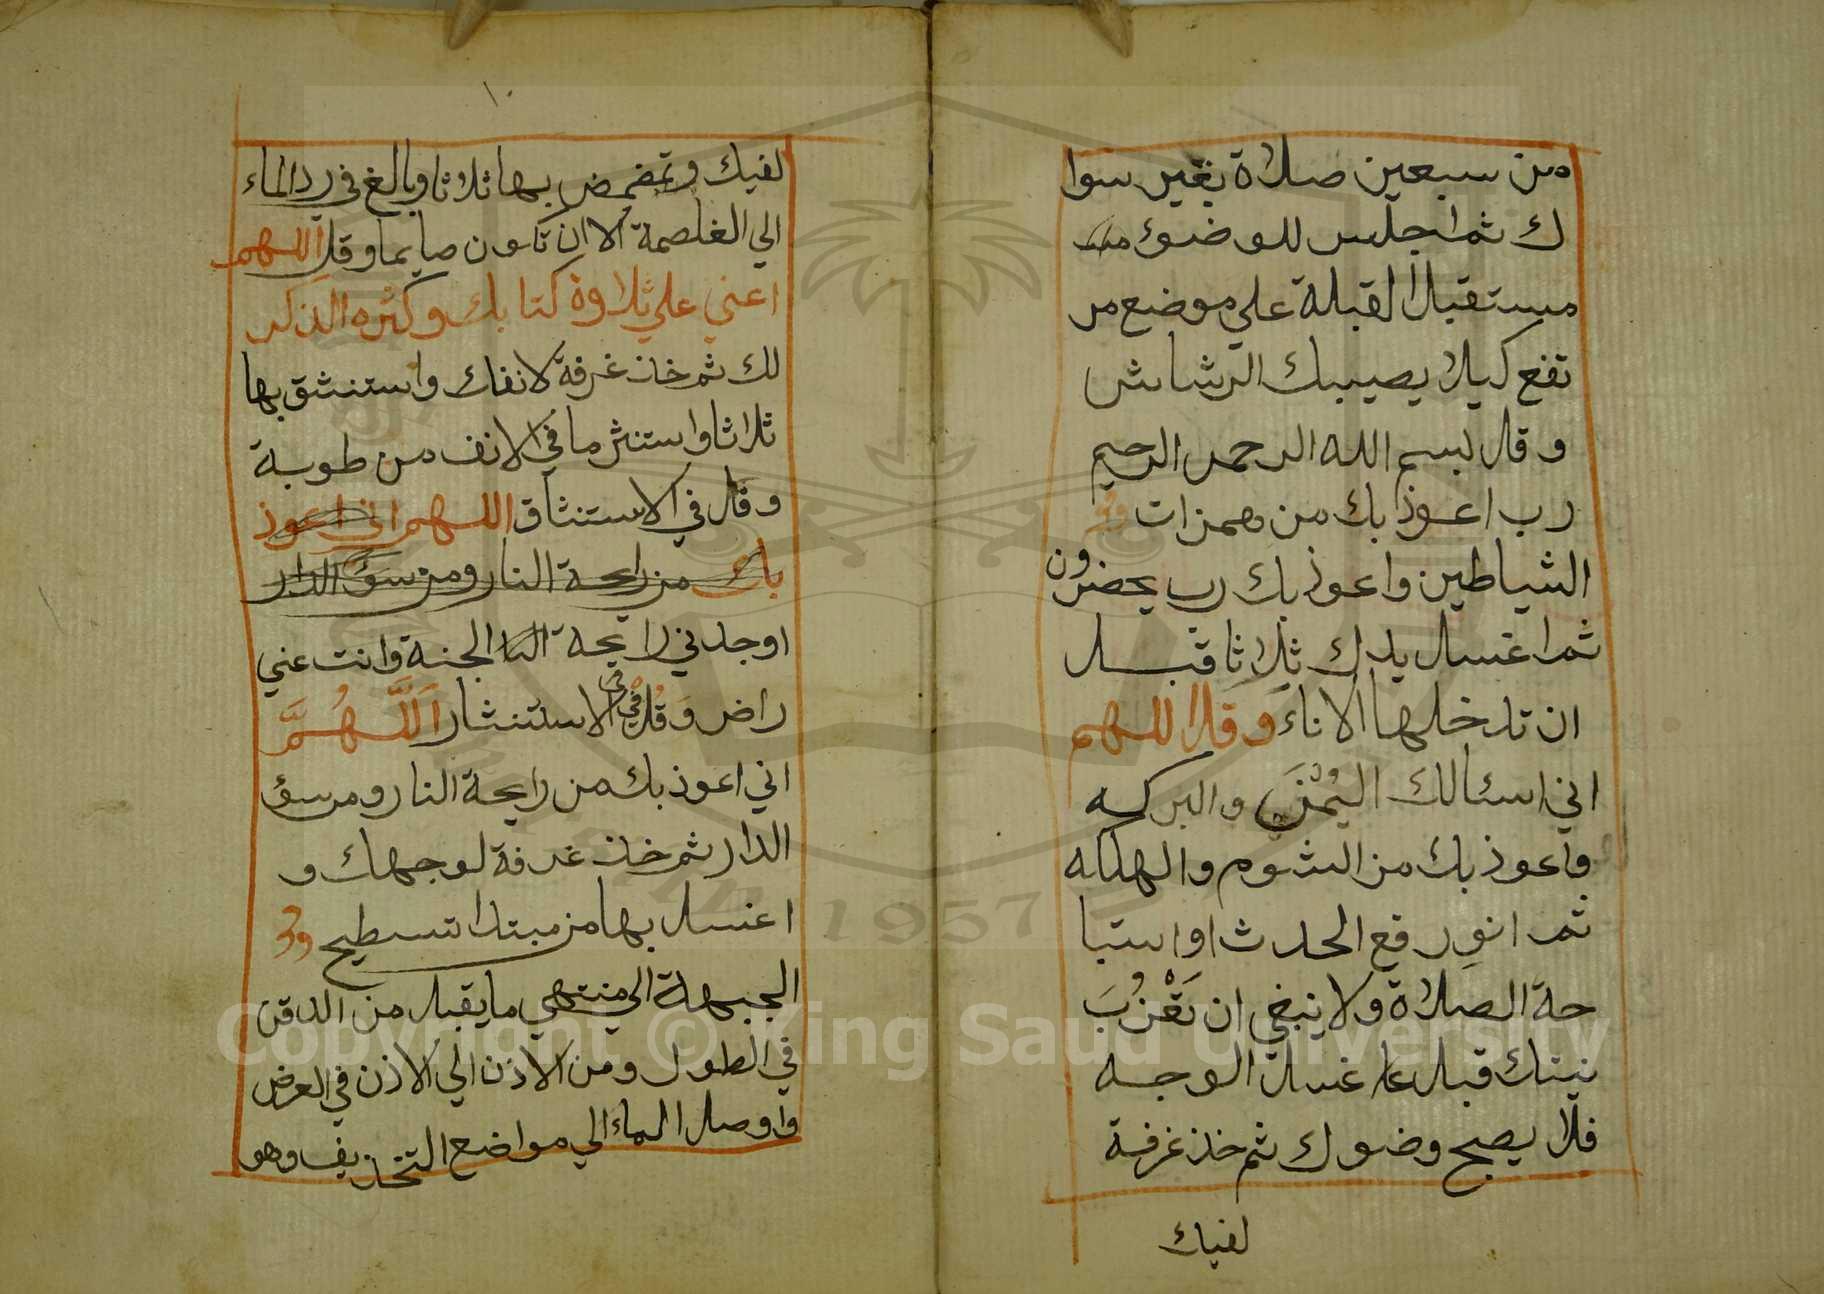 من سبعين صلاة بغير سوا
ك ثم اجلس للوضوء
مستقبل القبلة علي موضع مر
تفع كيلا يصيبك الرشاش
وقل بسم الله الرحمن الرحيم
رب اعوذ بك من همزات
الشياطين واعوذ بك رب يحضرون
ثم اغسل يدك ثلاثا قبل
ان تدخلها الاناء وقل اللهم
اني اسئالك اليُمْنَ والبركه
واعوذ بك من الشوم والهلكه
ثم انوِ رفع الحدث او استبا
حة الصلاة ولا ينبغي ان تَعْزُبَ
نيتك قبل غسل الوجه
فلا يصح وضوك ثم خذ غرفة
لفيك
١٠
لفيك وتمضمض بها ثلاثا وبالغ في رد الماء
الي الغلصمة الا ان تكون صايما وقل اللهم
اعني علي ثلاوة كتابك وكثره الذكر
لك ثم خذ غرفة لانفك واستنشق بها
ثلاثا واستنثر ما في الانف من طوبة
وقل في الاستنثاق اللهم اني اعوذ
بك من رايحة النار ومن سؤ الدار
اوجدني رايحة النا الجنة وانت عني
راض وَقُلْ في الاستنثار اَللَّهُمَّ
اني اعوذ بك من رايحة النار ومن سؤ
الدار ثم خذ غرفة لوجهك و
اغسل بها من مبتدا تسطيح
الجبهة الي منتهي ما يقبل من الدقن
في الطول ومن الاذن الي الاذن في العرض
واوصل الماء الي مواضع التخذيف وهو
1957
Copyright © King Saud University